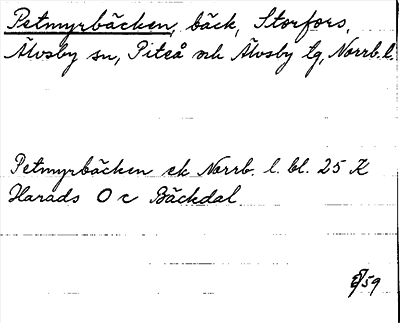 Petmyrbäcken, bäck, Storfors,
Älvsby sn, Piteå och Älvsby tg, Norrb. l.
Petmyrbäcken ek Norrb. l. bl. 25 K
Harads O c Bäckdal
59